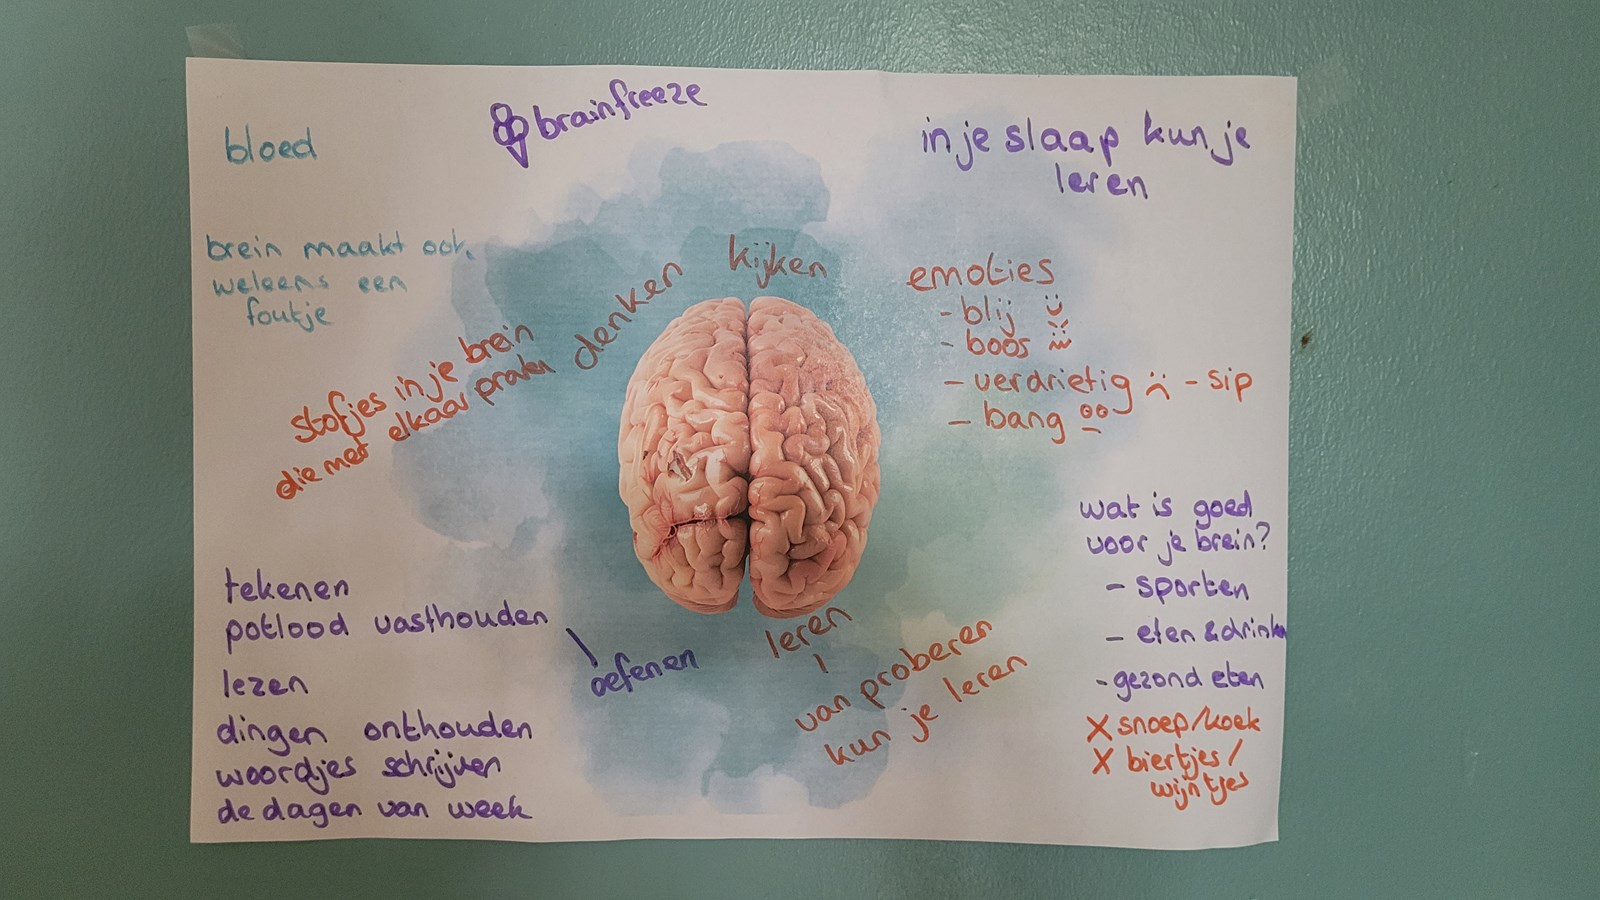 brainfreeze
bloed
in je slaap kun je
leren
brein maakt ook
weleens een
foutje
stofjes in je brein
die met elkaar praten
denken
kijken
emoties
- blij
- boos
- verdrietig - sip
- bang
wat is goed
voor je brein?
- sporten
- eten & drinken
- gezond eten
X snoep/koek
X biertjes/
wijntjes
tekenen
potlood vasthouden
lezen
dingen onthouden
woordjes schrijven
de dagen van week
oefenen
leren
van proberen
kun je leren